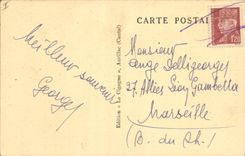 CARTE POSTALE
Meilleur souvenir
Georges
Edition « La Cigogne », Aurillac (Cantal)
1f20
Monsieur
Ange Dellizeorges
27, Allées Léon Gambetta
Marseille
(B. du Rh.)